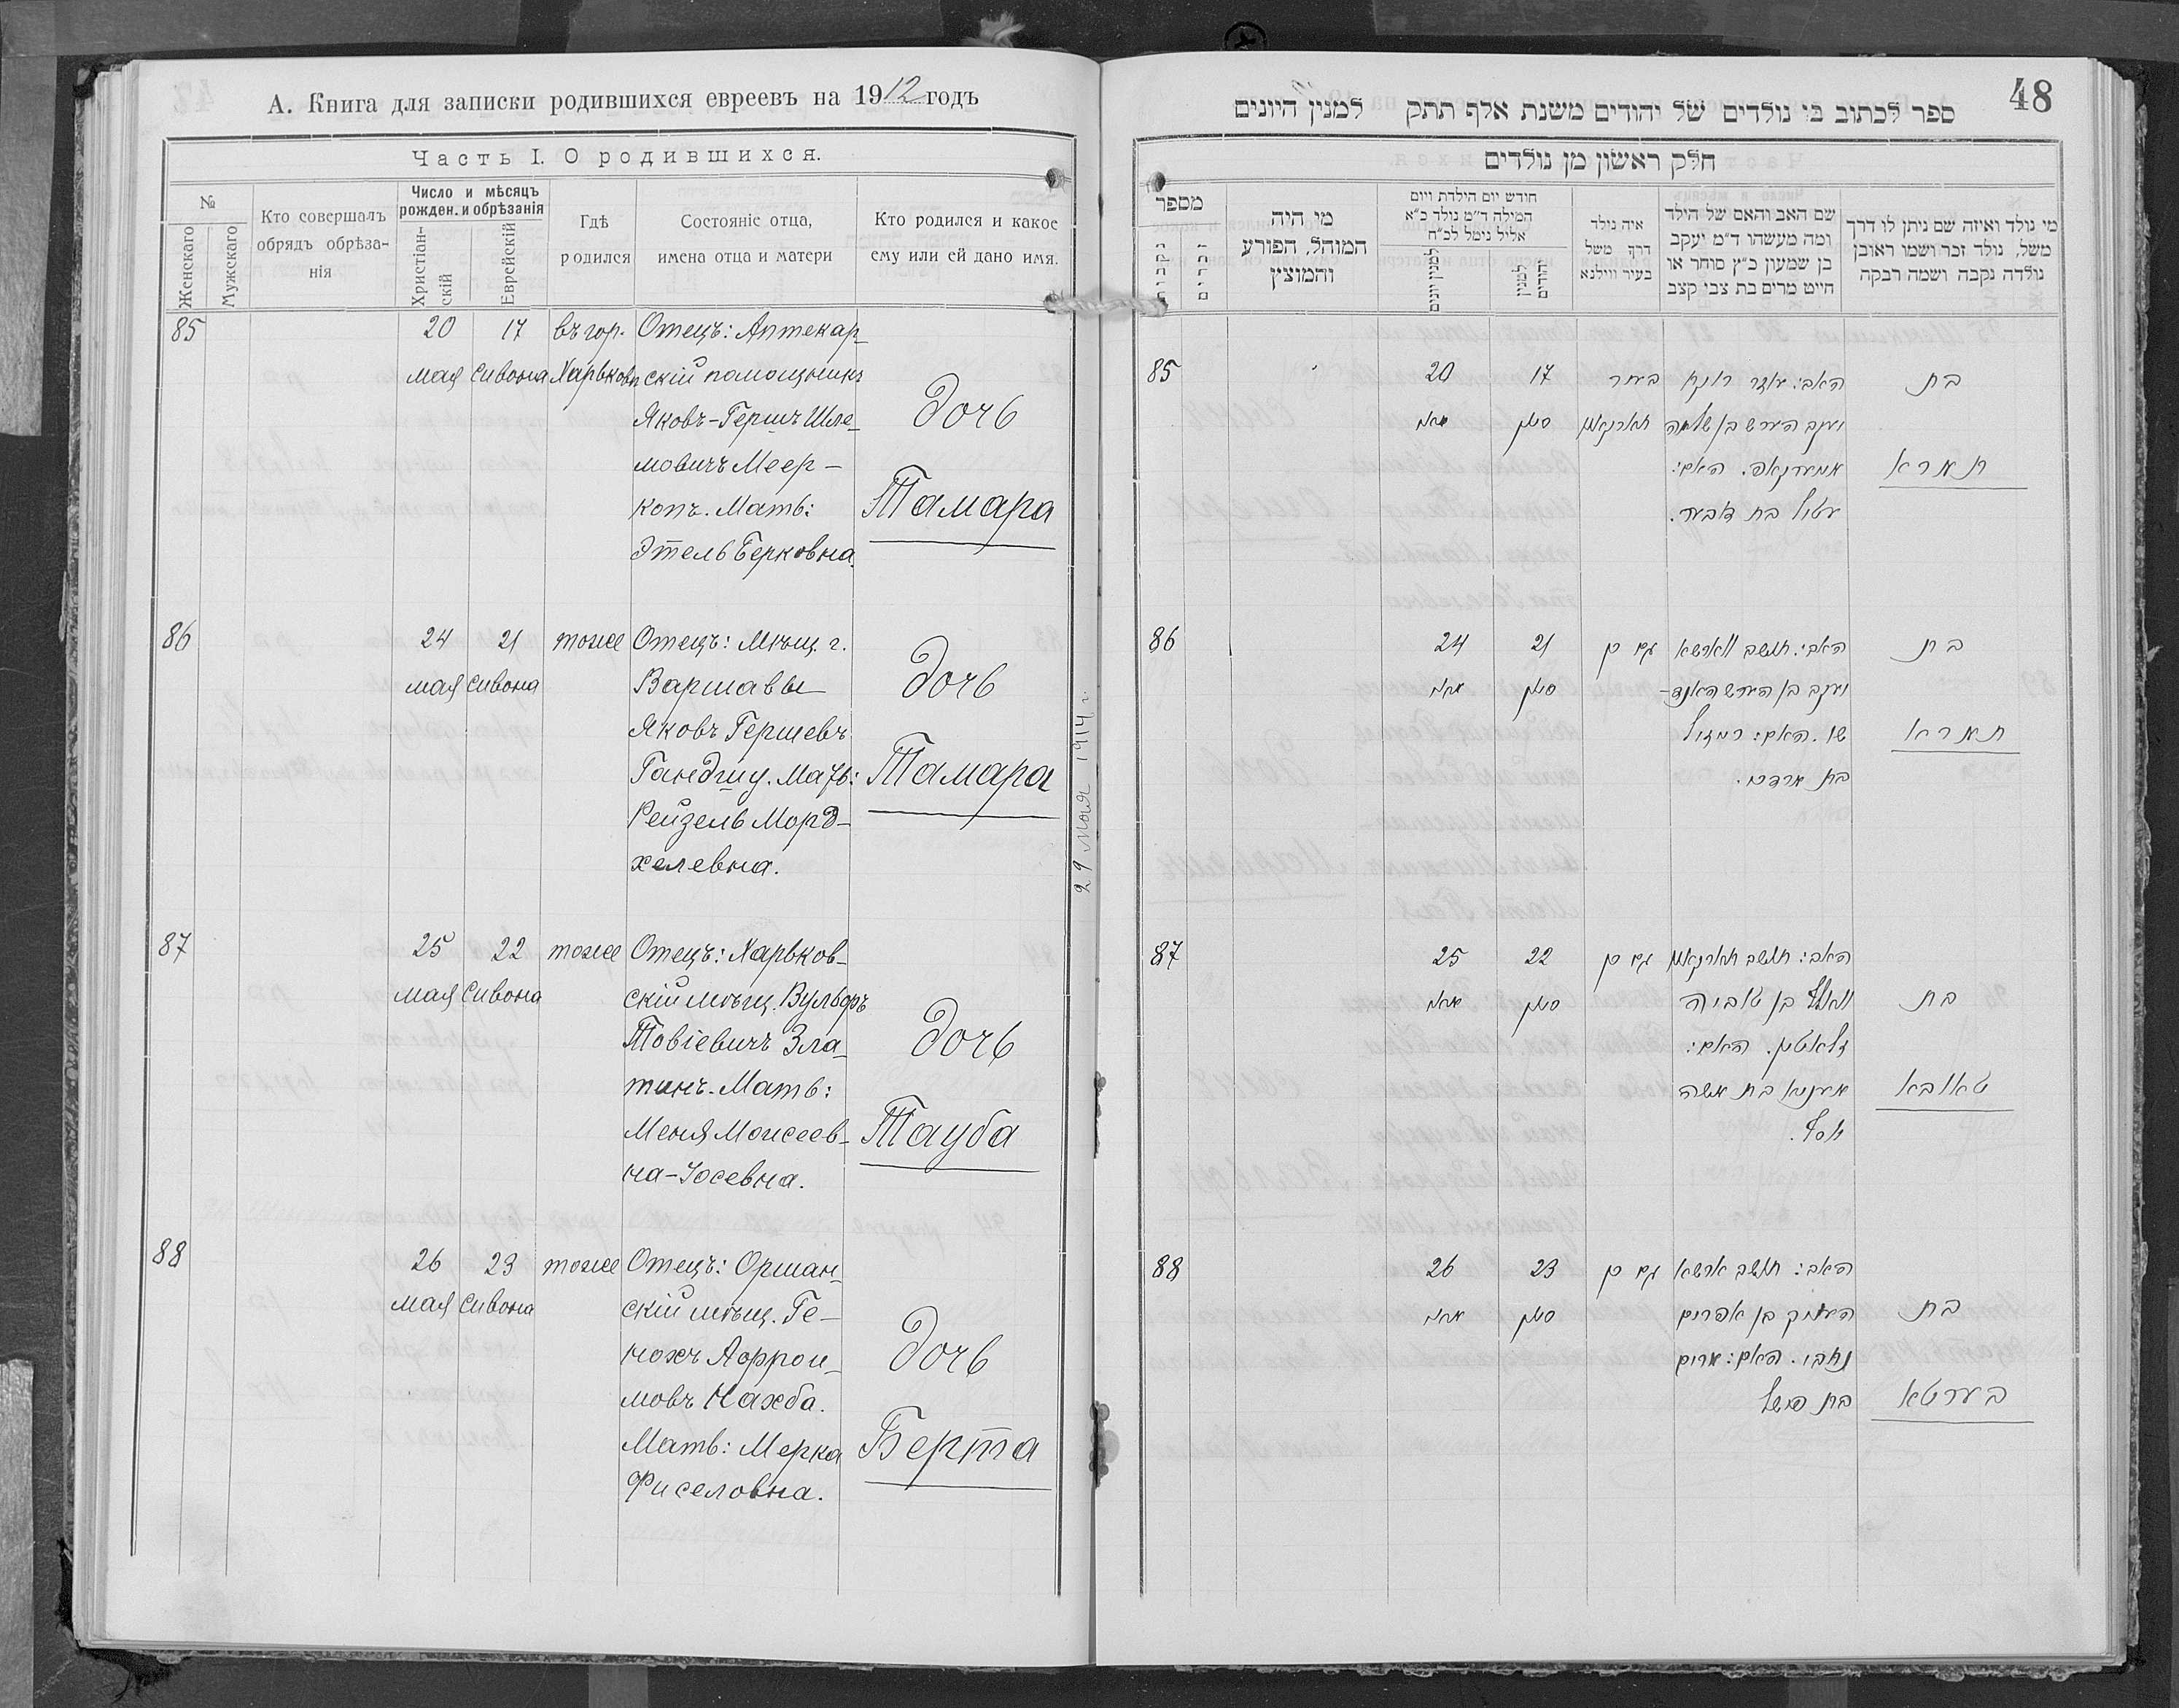 А. Книга для записки родившихся евреевъ на 1912 годъ
Часть I. О родившихся.
№
Женскаго
Мужскаго
Кто совершалъ
обрядъ обрѣза-
нія
Число и мѣсяцъ
рожден. и обрѣзанія
Христіан-
скій
Еврейскій
Гдѣ
родился
Состояніе отца,
имена отца и матери
Кто родился и какое
ему или ей дано имя.
85 20 17 въ гор. Отецъ: Аптекар-
мая Сивона Харьковѣ скій помощникъ
Яковъ-Гершъ Шле-
мовичъ Меер-
копъ. Мать:
Этель Берковна.
Дочь
Тамара
86 24 21 тоже Отецъ: Мѣщ. г.
мая Сивона Варшавы
Яковъ Гершевъ
Гандшу. Мать:
Рейзель Морд-
хелевна.
Дочь
Тамара
87 25 22 тоже Отецъ: Харьков-
мая Сивона скій мѣщ. Вульфъ
Товіевичъ Зла-
тинъ. Мать:
Меня Моисеев-
на-Іосевна.
Дочь
Тауба
88 26 23 тоже Отецъ: Оршан-
мая Сивона скій мѣщ. Ге-
нохъ Афрои-
мовъ Нахба.
Мать: Мерка
Фиселовна.
Дочь
Берта
29 Моя 1914 г.
48
ספר לכתוב בו נולדים של יהודים משנת אלף תתק למנין היונים
חלק ראשון מן נולדים
מספר
נקבות
זכרים
מי היה
המוהל, הפורע
והמוצץ
חודש יום הילדת ויום
המילה ד״מ נולד כ״א
אליל נימל לכ״ח
למנין יונים
למנין
יהודים
איה נולד
דרך משל
בעיר ווילנא
שם האב והאם של הילד
ומה מעשהו ד״מ יעקב
בן שמעון כ״ץ סוחר או
חייט מרים בת צבי קצב
מי נולד ואיזה שם ניתן לו דרך
משל, נולד זכר ושמו ראובן
נולדה נקבה ושמה רבקה
85 20 17 בעיר האב: עוזר רוקח
מאי סיון חארקאוו יעקב הירש בן שלמה
מעערקאפ. האם:
עטיל בת
בת
תמרא
86 24 21 גם כן האב: תושב ווארשא
מאי סיון יעקב בן הירש האנד-
שו. האם: רייזיל
בת מרדכי.
בת
תמרא
87 25 22 גם כן האב: תושב חארקאוו
מאי סיון וואלף בן טוביה
זלאטין. האם:
מעניא בת משה
יוסף.
בת
טאובא
88 26 23 גם כן האב: תושב ארשא
מאי סיון העניך בן אפרים
נחבי. האם: מרים
בת פישל
בת
בערטא